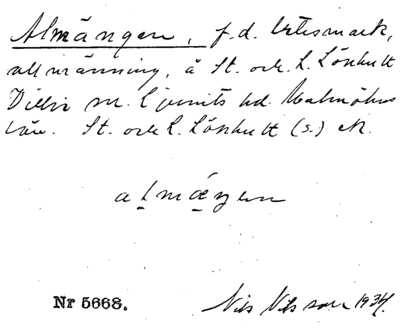 Almängen, f.d. betesmark,
allmänning, å St. och L. Lönhult
m. Ljunits hd. Malmöhus
län. St. och L. Lönhult (s.) ek.
almängen
Nr 5668. Nils Nilsson 1934.